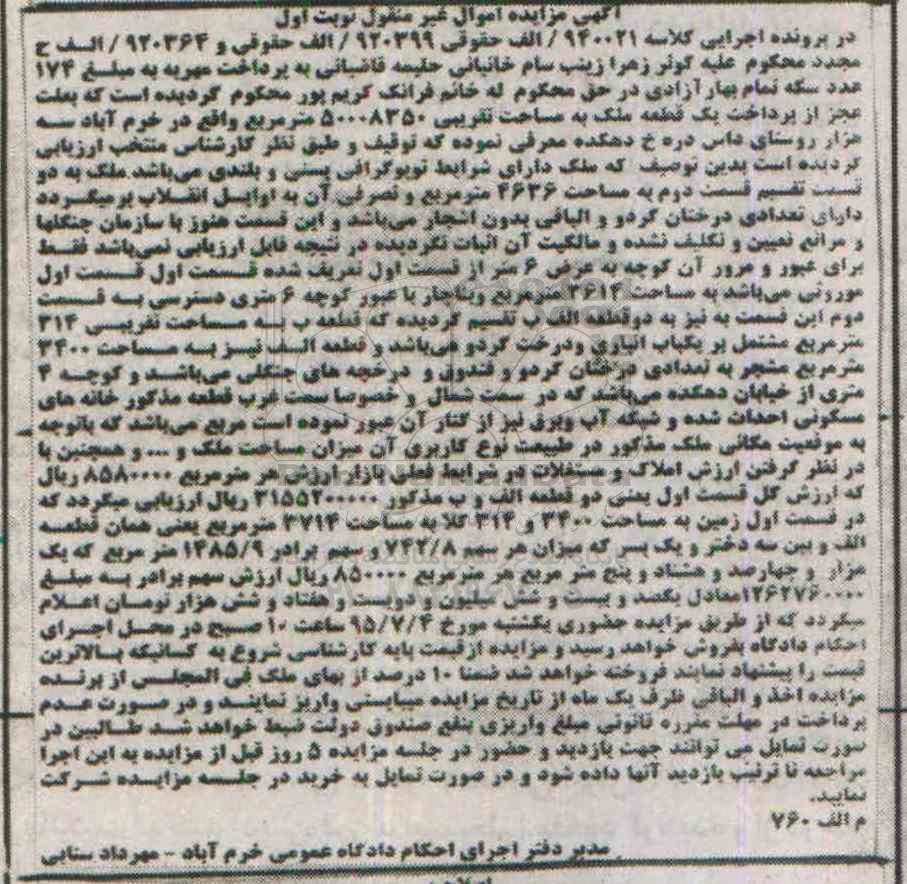 آگهی مزایده اموال غیر منقول نوبت اول
در پرونده اجرایی کلاسه ۹۴۰۰۲۱ / الف حقوقی ۹۲۰۳۹۹ / الف حقوقی و ۹۲۰۳۶۴ / الف ح
مجدد محکوم علیه کوثر زهرا زینب سام خانیانی حلیمه قاشیانی به پرداخت مهریه به مبلغ ۱۷۴
عدد سکه تمام بهار آزادی در حق محکوم له خانم فرانک کریم پور محکوم گردیده است که بعلت
عجز از پرداخت یک قطعه ملک به مساحت تقریبی ۵۰۰۰۸۳۵۰ مترمربع واقع در خرم آباد سه
هزار روستای داس دره خ دهکده معرفی نموده که توقیف و طبق نظر کارشناس منتخب ارزیابی
گردیده است بدین توصیف که ملک دارای شرایط توپوگرافی پستی و بلندی می‌باشد ملک به دو
قسمت تقسیم قسمت دوم به مساحت ۴۶۳۶ مترمربع و تصرفی آن به اوایل انقلاب برمیگردد
دارای تعدادی درختان گردو و الباقی بدون اشجار می‌باشد و این قسمت هنوز با سازمان جنگلها
و مراتع تعیین و تکلیف نشده و مالکیت آن اثبات نگردیده در نتیجه قابل ارزیابی نمی‌باشد فقط
برای عبور و مرور آن کوچه به عرض ۶ متر از قسمت اول تعریف شده قسمت اول قسمت اول
موروثی می‌باشد به مساحت ۳۶۱۴ مترمربع وبناچار با عبور کوچه ۶ متری دسترسی به قسمت
دوم این قسمت به نیز به دوقطعه الف ب تقسیم گردیده که قطعه ب به مساحت تقریبی ۳۱۴
مترمربع مشتمل بر یکباب انباری ودرخت گردو می‌باشد و قطعه الف نیز به مساحت ۳۴۰۰
مترمربع مشجر به تعدادی درختان گردو و فندوق و درخچه های جنگلی می‌باشد و کوچه ۴
متری از خیابان دهکده می‌باشد که در سمت شمال و خصوصا سمت غرب قطعه مذکور خانه های
مسکونی احداث شده و شبکه آب وبرق نیز از کنار آن عبور نموده است مربع می‌باشد که باتوجه
به موقعیت مکانی ملک مذکور در طبیعت نوع کاربری آن میزان مساحت ملک و ... و همچنین با
در نظر گرفتن ارزش املاک و مستغلات در شرایط فعلی بازار ارزش هر مترمربع ۸۵۸۰۰۰۰ ریال
که ارزش کل قسمت اول یعنی دو قطعه الف و ب مذکور ۳۱۵۵۲۰۰۰۰۰ ریال ارزیابی میگردد که
در قسمت اول زمین به مساحت ۳۴۰۰ و ۳۱۴ کلا به مساحت ۳۷۱۴ مترمربع یعنی همان قطعه
الف و بین سه دختر و یک پسر که میزان هر سهم ۷۴۲/۸ و سهم برادر ۱۴۸۵/۹ متر مربع که یک
هزار و چهارصد و هشتاد و پنج متر مربع هر مترمربع ۸۵۰۰۰۰ ریال ارزش سهم برادر به مبلغ
۱۲۶۲۷۶۰۰۰۰ معادل یکصد و بیست و شش میلیون و دویست و هفتاد و شش هزار تومان اعلام
میگردد که از طریق مزایده حضوری یکشنبه مورخ ۹۵/۷/۴ ساعت ۱۰ صبح در محل اجرای
احکام دادگاه بفروش خواهد رسید و مزایده ازقیمت پایه کارشناسی شروع به کسانیکه بالاترین
قیمت را پیشنهاد نمایند فروخته خواهد شد ضمنا ۱۰ درصد از بهای ملک فی المجلس از برنده
مزایده اخذ و الباقی ظرف یک ماه از تاریخ مزایده میبایستی واریز نمایند و در صورت عدم
پرداخت در مهلت مقرره قانونی مبلغ واریزی بنفع صندوق دولت ضبط خواهد شد طالبین در
صورت تمایل می توانند جهت بازدید و حضور در جلسه مزایده ۵ روز قبل از مزایده به این اجرا
مراجعه تا ترتیب بازدید آنها داده شود و در صورت تمایل به خرید در جلسه مزایده شرکت
نمایید.
م الف ۷۶۰
مدیر دفتر اجرای احکام دادگاه عمومی خرم آباد - مهرداد سنایی